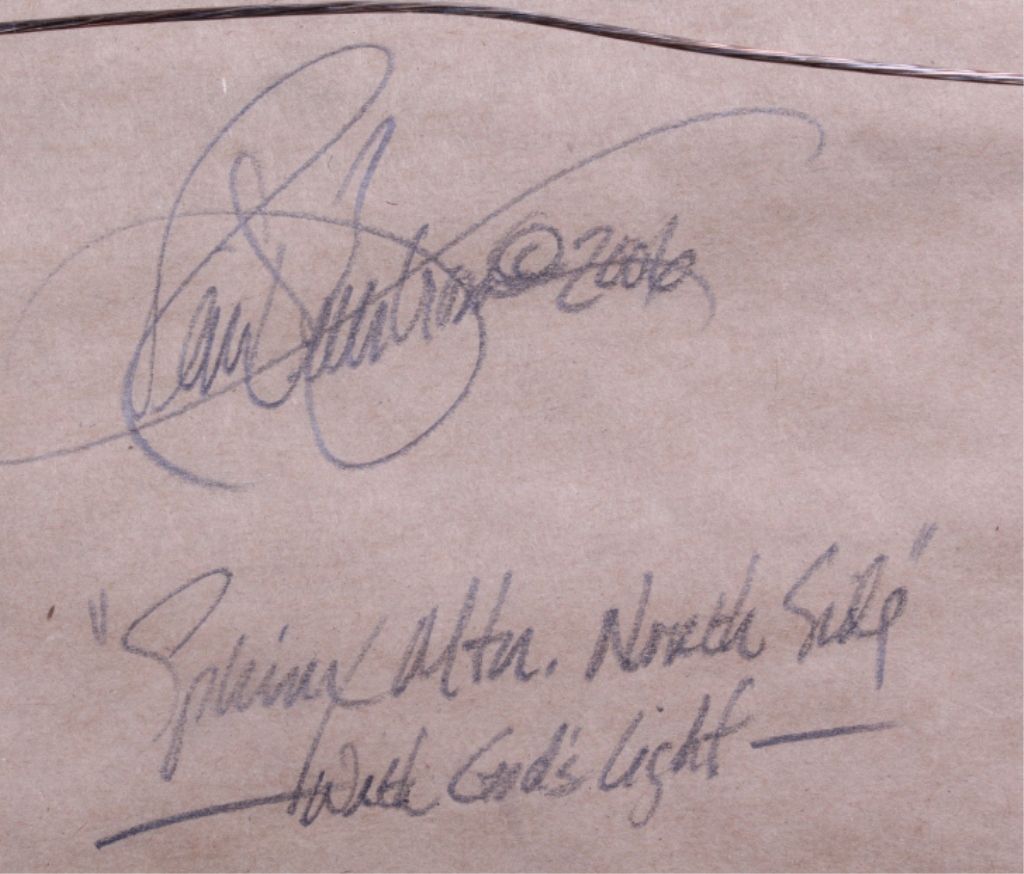 © 2006
"Sphinx Alter. North Side"
— With God's Light —